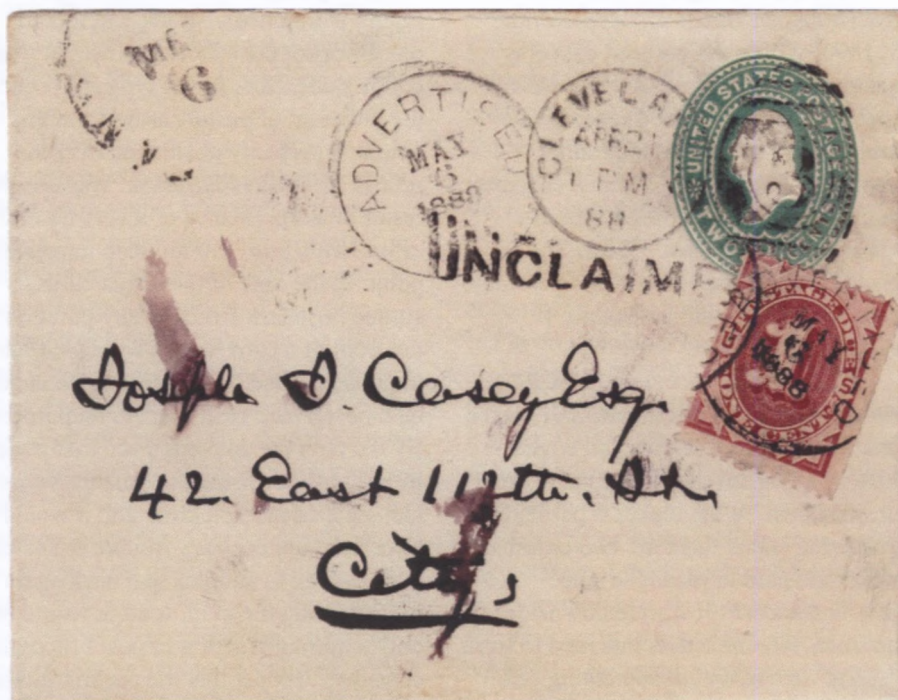 MA
6
ADVERTISED
MAY
6
1888
CLEVELAN
APR 21
1 PM
88
UNITED STATES POSTAGE
TWO CENTS
UNCLAIME
POSTAGE DUE
ONE CENT
MAY
6
1888
Joseph D. Casey Esq.
42. East 112th. St.
City,